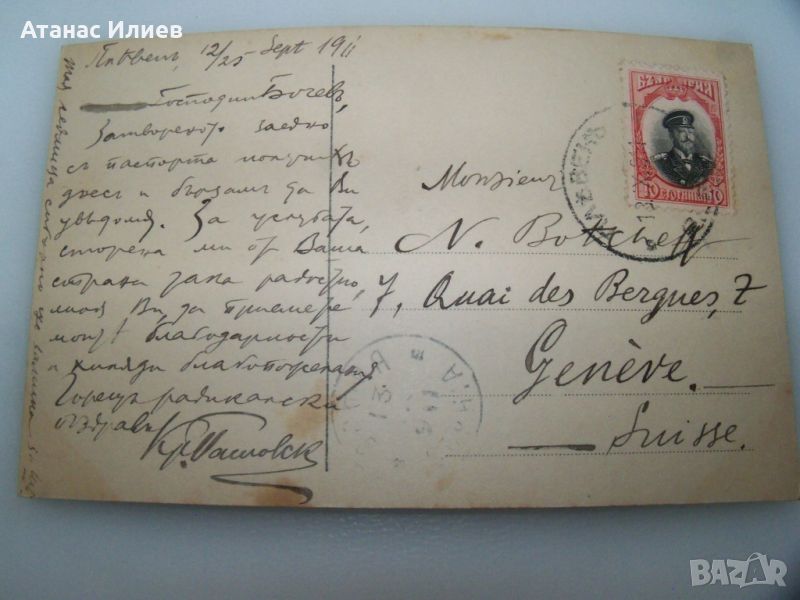 Атанас Илиев
12/25 Sept 1911
Господин Бочевъ,
Затвореното заедно
съ паспорта получихъ
днес и бързамъ да Ви
уведомя. За услугата,
сторена ми от Ваша
страна, радостно,
моля Ви да приемете
моят благодарности
и хиляди благопожелания
Горещъ радикалски
поздравъ
БЪЛГАРИЯ
10 СТОТИНКИ 10
Monsieur
N. Botcheff
7, Quai des Bergues, 7
Genève.
Suisse.
BAZAR